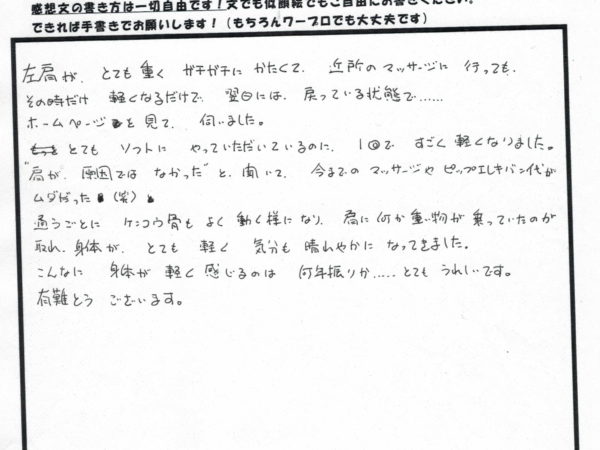 感想文の書き方は一切自由です！文でも似顔絵でもご自由にお書きください。
できれば手書きでお願いします！（もちろんワープロでも大丈夫です）
左肩が、とても重く ガチガチに かたくて、近所の マッサージに 行っても、
その時だけ 軽くなるだけで 翌日には、戻っている状態で……
ホームページを見て、伺いました。
とても ソフトに やっていただいているのに、1回で すごく 軽くなりました。
"肩が、原因では なかった"と、聞いて、今までの マッサージや ピップエレキバン代が
ムダだった（笑）
通うごとに ケンコウ骨も よく 動く様になり、肩に何か重い物が 乗っていたのが
取れ、身体が、とても 軽く 気分も 晴れやかに なってきました。
こんなに 身体が 軽く 感じるのは 何年振りか…..とても うれしいです。
有難とう ございます。